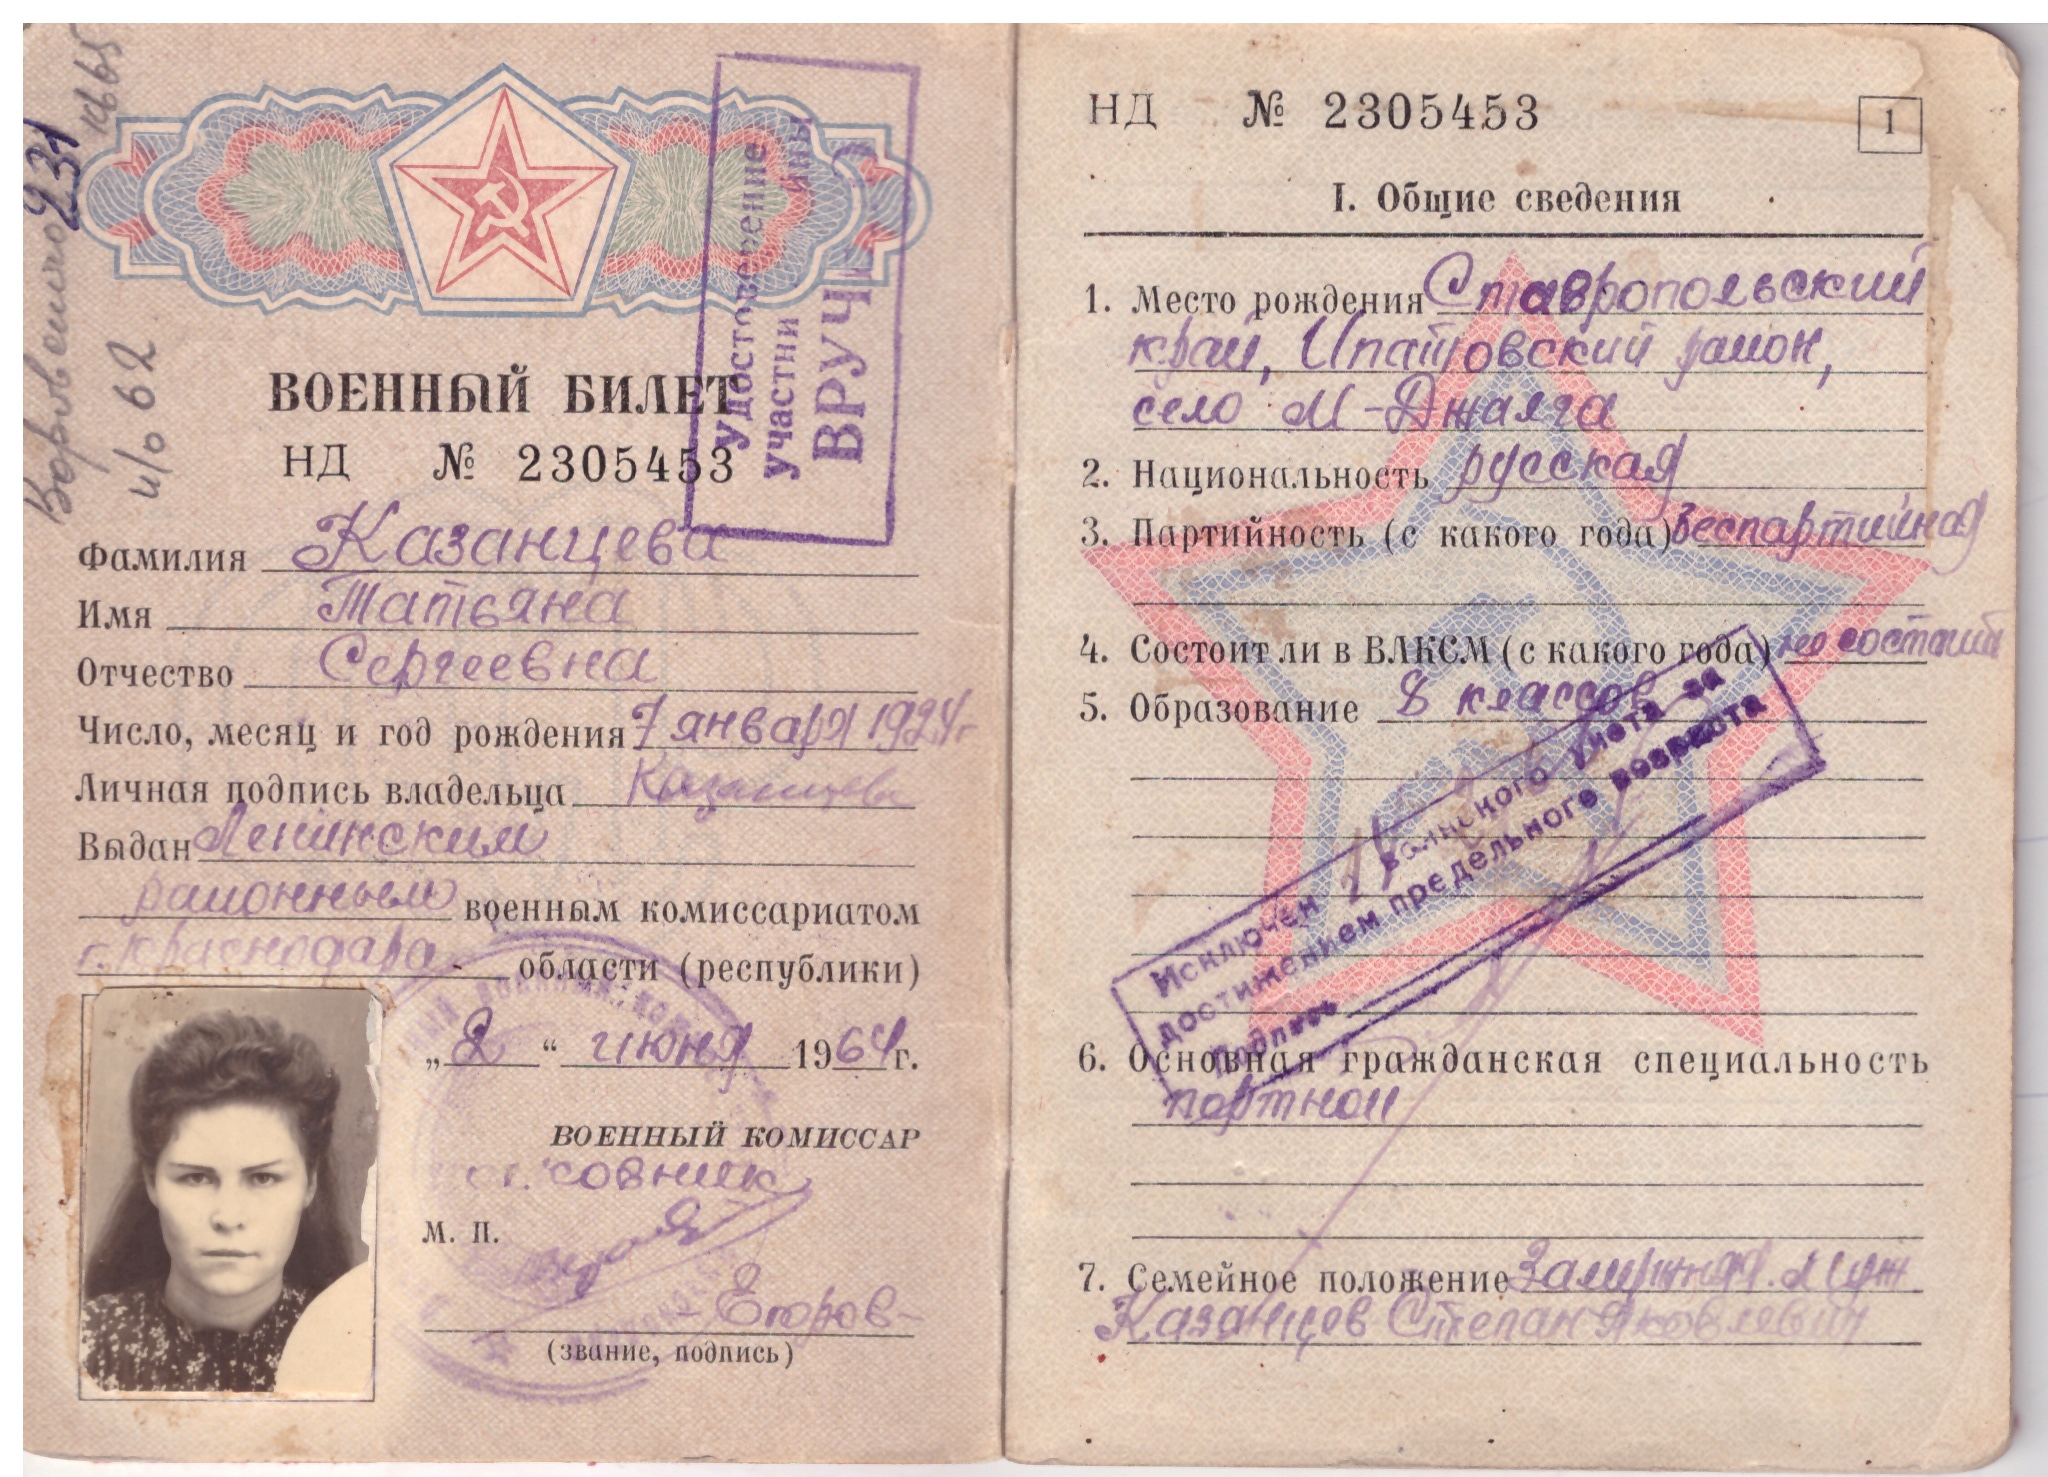 231
и/о 62
Удостоверение
участни йны
ВРУЧ
ВОЕННЫЙ БИЛЕТ
НД № 2305453
Фамилия Казанцева
Имя Татьяна
Отчество Сергеевна
Число, месяц и год рождения 7 января 1924 г
Личная подпись владельца Казанцева
Выдан Ленинским
районным военным комиссариатом
г. Краснодара области (республики)
„2“ июня 1964 г.
ВОЕННЫЙ КОМИССАР
М. П.
- Егоров -
(звание, подпись)
НД № 2305453
1
I. Общие сведения
1. Место рождения Ставропольский
край, Ипатовский район,
село М-Джалга
2. Национальность русская
3. Партийность (с какого года) Беспартийная
4. Состоит ли в ВЛКСМ (с какого года) не состоит
5. Образование 8 классов
Исключен воинского учета за
достижением предельного возраста
Подпись
6. Основная гражданская специальность
портной
7. Семейное положение Замужняя. Муж
Казанцев Степан Яковлевич